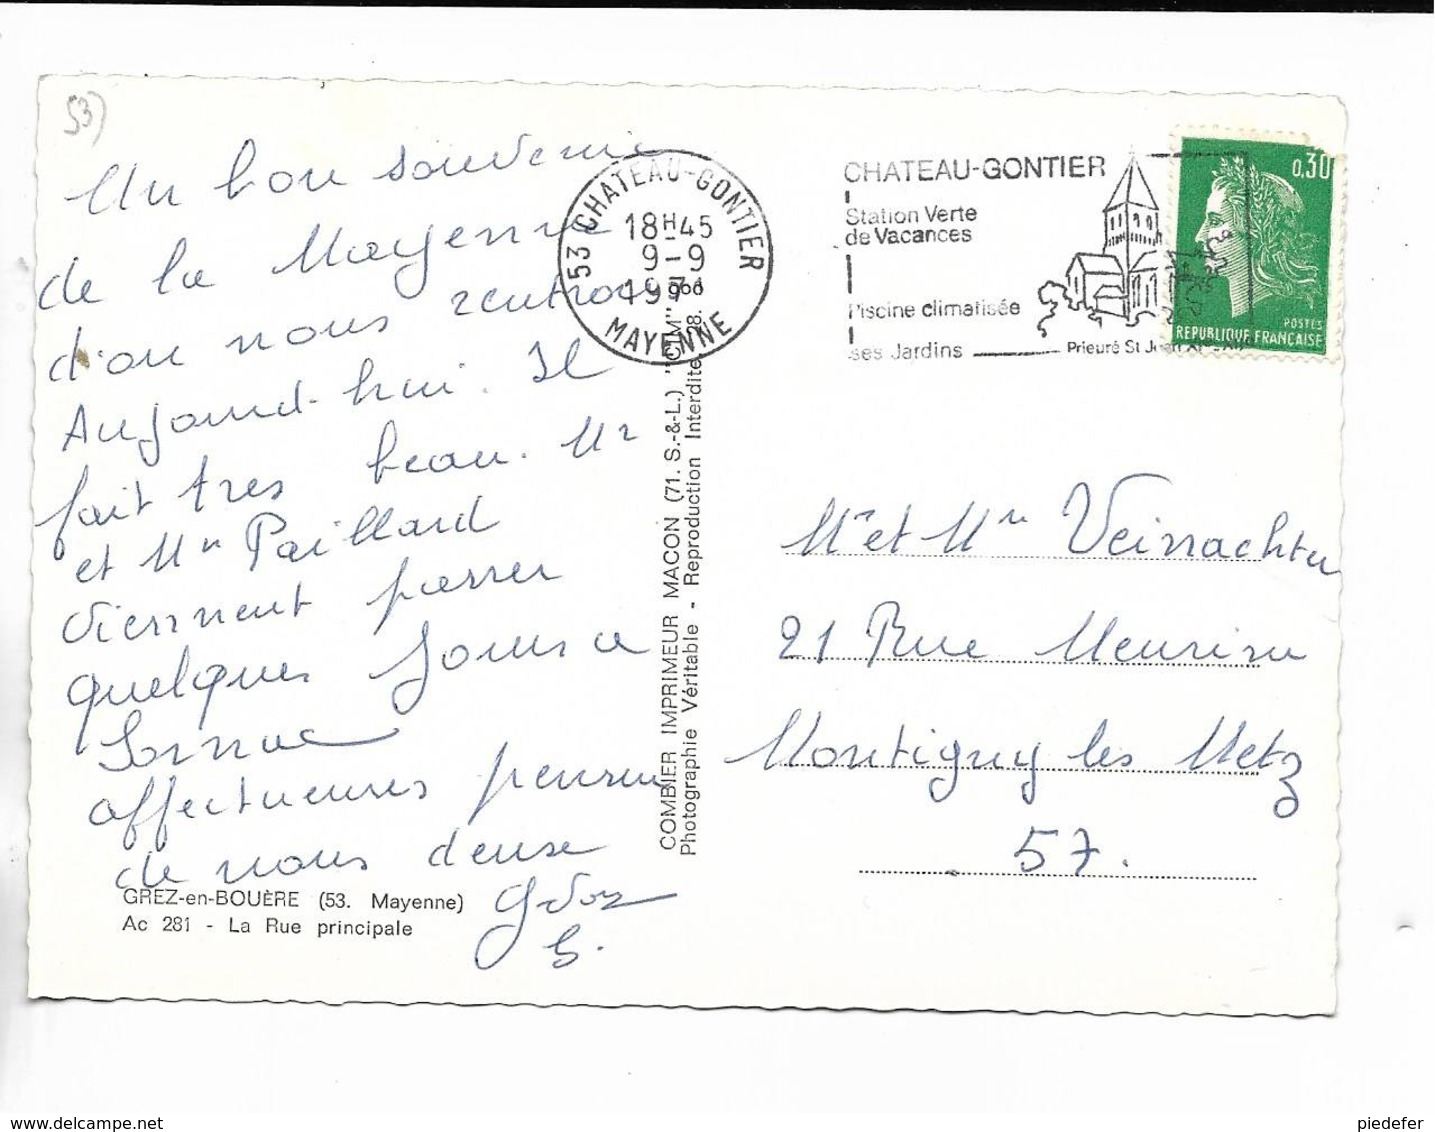 53)
Un bon souvenir
de la Mayenne
d'ou nous rentrons
Aujourd-hui. Il
fait tres beau. Mr
et Mm Paillard
viennent passer
quelques Jours a
affectueuses pensen
de nous deuse
GREZ-en-BOUÈRE (53. Mayenne)
Ac 281 - La Rue principale
COMBIER IMPRIMEUR MACON (71. S.-&-L.) "CIM"
Photographie Véritable - Reproduction Interdite
53 CHATEAU-GONTIER
18H45
9-9
MAYENNE
CHATEAU-GONTIER
Station Verte
de Vacances
Piscine climatisée
ses Jardins
Prieuré St Jean
0,30
POSTES
REPUBLIQUE FRANÇAISE
Mr et Mm
21 Rue
Montigny les Metz
57.
www.delcampe.net
piedefer